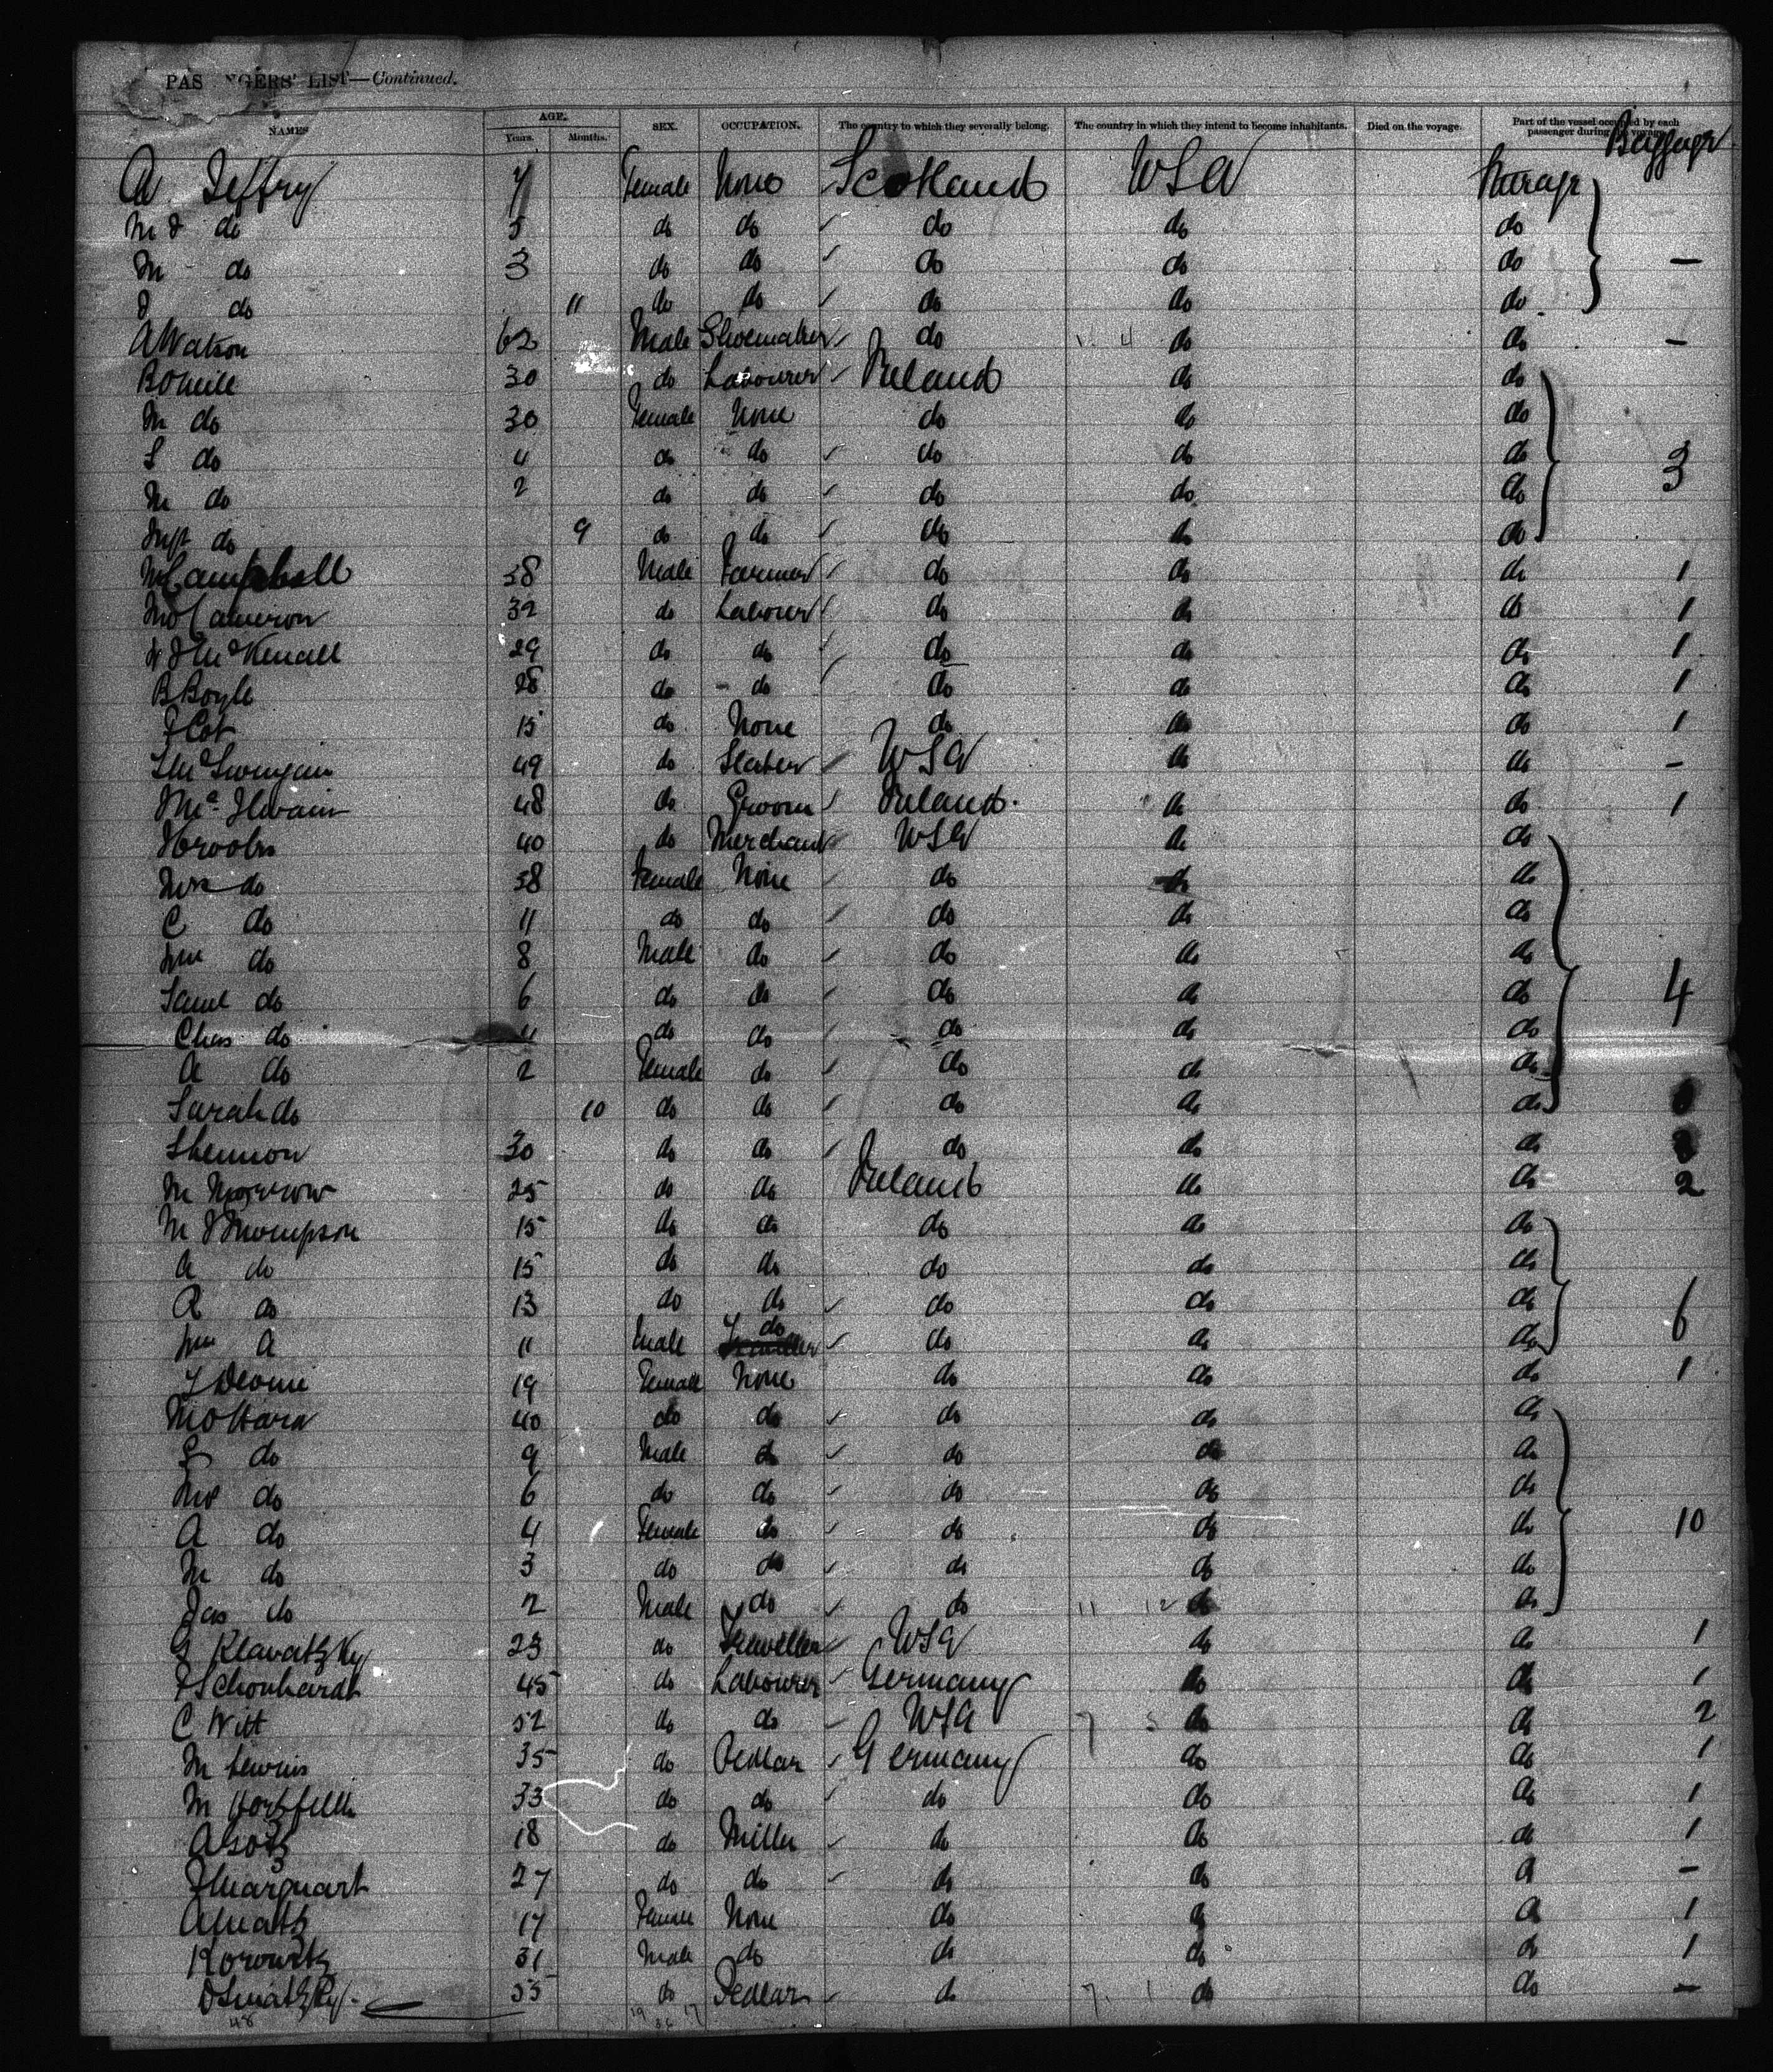 PAS NGERS' LIST—Continued.
NAMES AGE. Years. Months. SEX. OCCUPATION. The country to which they severally belong. The country in which they intend to become inhabitants. Died on the voyage. Part of the vessel occupied by each passenger during the voyage. Baggage
A Jeffry 7 Female None Scotland USA Steerage
M J do 5 do do do do do
M do 3 do do do do do —
J do 11 do do do do do
A Watson 62 Male Shoemaker do do do —
B ONeill 30 do Labourer Ireland do do
M do 30 Female None do do do
S do 4 do do do do do 3
M do 2 do do do do do
Inft do 9 do do do do do
Campbell 38 Male Farmer do do do 1
Cameron 32 do Labourer do do do 1
McKendll 29 do do do do do 1
B Boyle 28 do do do do do 1
15 do None do do do 1
49 do Slater USA do do —
McIlwain 48 do Groom Ireland do do 1
40 do Merchant USA do do
Mrs do 38 Female None do do do
C do 11 do do do do do
Wm do 8 Male do do do do
Saml do 6 do do do do do 4
Chas do 4 do do do do do
A do 2 Female do do do do
Sarah do 10 do do do do do
Shennon 30 do do do do do
M Morrow 25 do do Ireland do do 2
M J Thompson 15 do do do do do
A do 15 do do do do do
R do 13 do do do do do 6
Wm do 11 Male do do do do
19 Female None do do do 1
M OHara 40 do do do do do
S do 9 Male do do do do
6 do do do do do
A do 4 Female do do do do 10
M do 3 do do do do do
Jas do 2 Male do do do do
S Klavatzky 23 do Traveller USA do do 1
F Schonhardt 45 do Labourer Germany do do 1
C Witt 52 do do USA do do 2
M Lewin 35 do Pedlar Germany do do 1
M 33 do do do do do 1
A 18 do Miller do do do 1
F Marquart 27 do do do do do —
A 17 Female None do do do 1
Horowitz 31 Male do do do do 1
55 do Pedlar do do do —
48